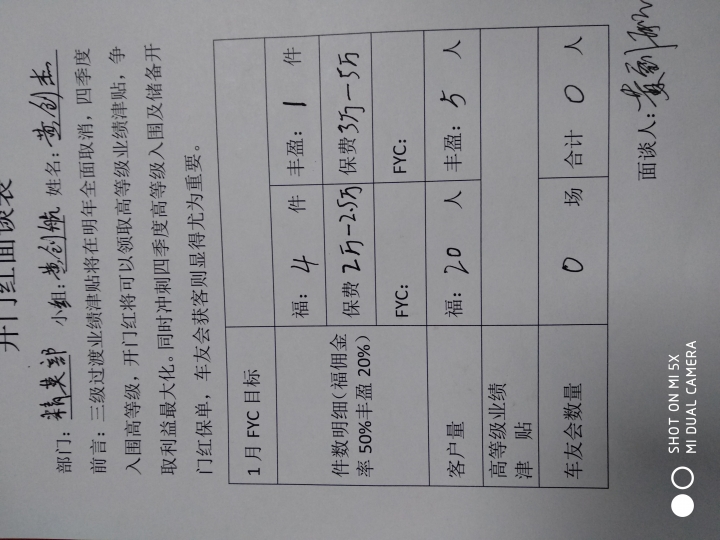 开门红面谈表
部门：精英部 小组：黄创航 姓名：黄创杰
前言：三级过渡业绩津贴将在明年全面取消，四季度
入围高等级，开门红将可以领取高等级业绩津贴，争
取利益最大化。同时冲刺四季度高等级入围及储备开
门红保单，车友会获客则显得尤为重要。
1 月 FYC 目标
件数明细（福佣金
率 50%丰盈 20%）
福：4 件 丰盈：1 件
保费 2万-2.5万 保费 3万-5万
FYC: FYC:
客户量 福：20 人 丰盈：5 人
高等级业绩
津 贴
车友会数量 0 场 合计 0 人
面谈人：
SHOT ON MI 5X
MI DUAL CAMERA